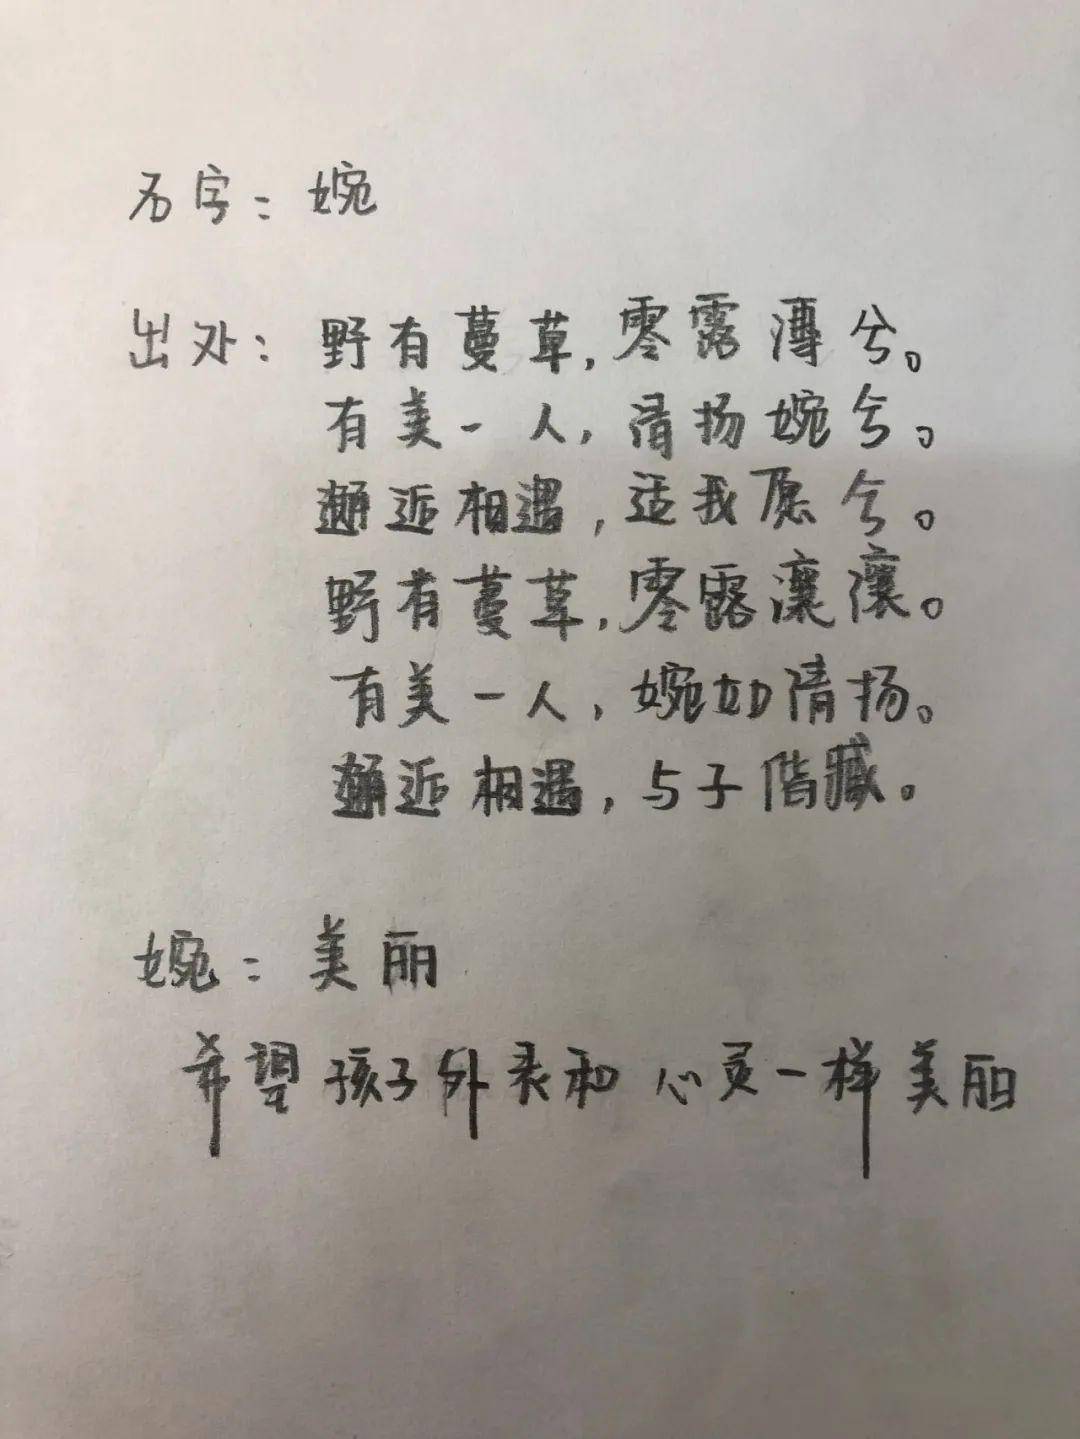 名字：婉
出处：野有蔓草，零露漙兮。
有美一人，清扬婉兮。
邂逅相遇，适我愿兮。
野有蔓草，零露瀼瀼。
有美一人，婉如清扬。
邂逅相遇，与子偕臧。
婉：美丽
希望孩子外表和心灵一样美丽